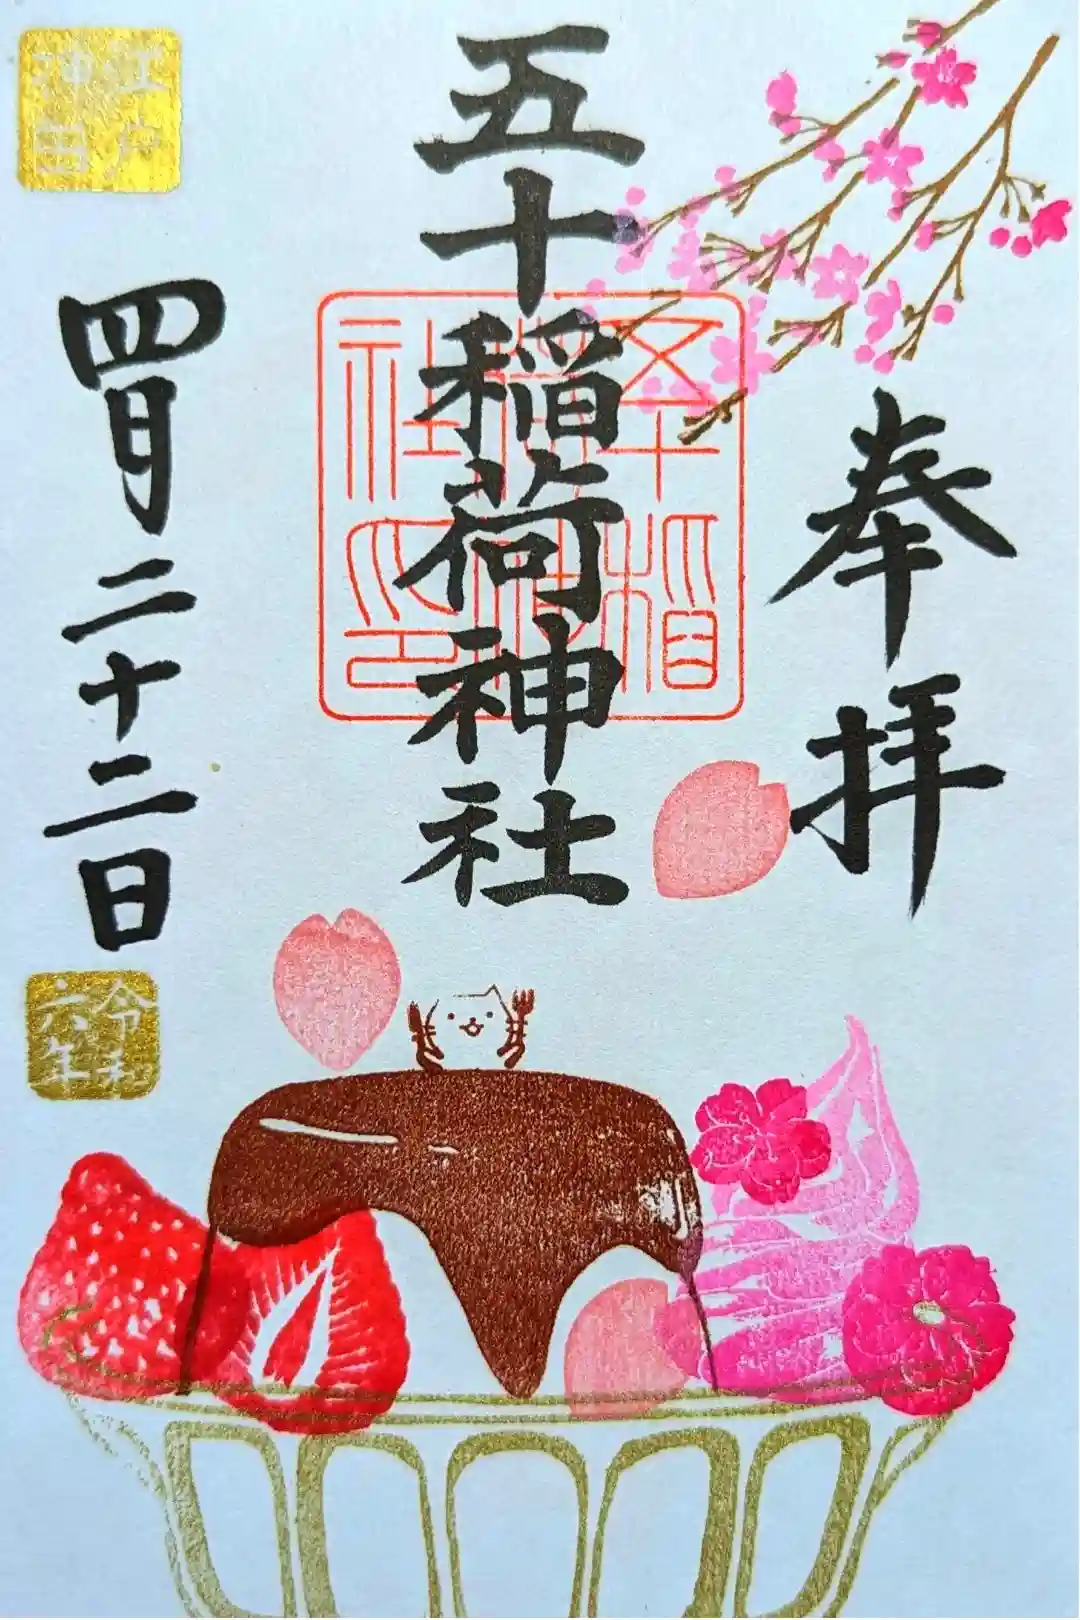 奉拝
五十稲荷神社
五十稲
荷神
社印
江戸
神田
四月二十二日
令和
六年